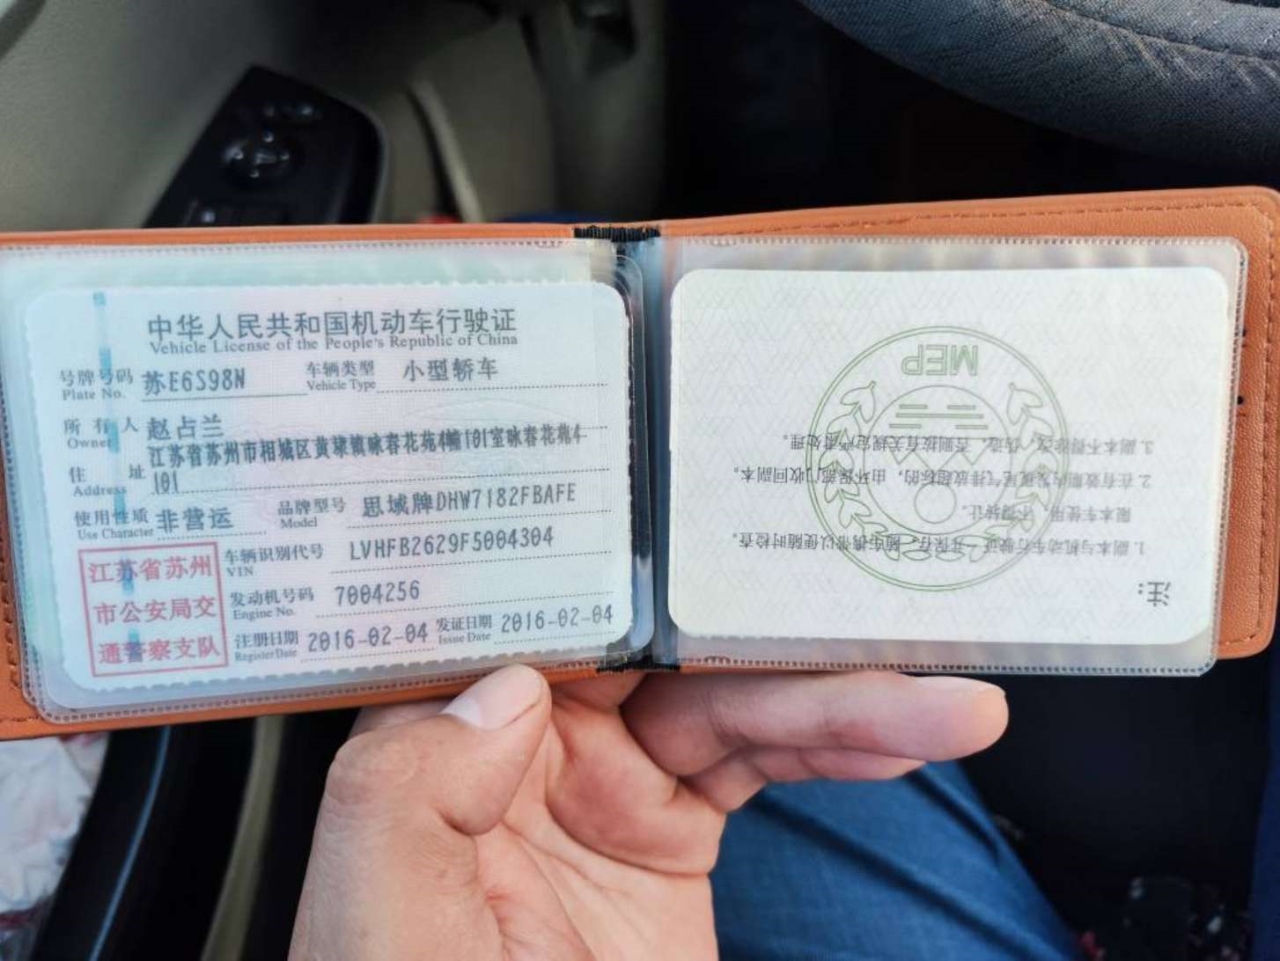 中华人民共和国机动车行驶证
Vehicle License of the People's Republic of China
号牌号码 苏E6S98N 车辆类型 小型轿车
Plate No. Vehicle Type
所有人 赵占兰
Owner
住址 江苏省苏州市相城区黄埭镇咏春花苑4幢101室咏春花苑4-
Address 101
使用性质 非营运 品牌型号 思域牌DHW7182FBAFE
Use Character Model
江苏省苏州
市公安局交
通警察支队
车辆识别代号 LVHFB2629F5004304
VIN
发动机号码 7004256
Engine No.
注册日期 2016-02-04 发证日期 2016-02-04
Register Date Issue Date
MEP
注:
1. 副本与机动车行驶证一并保存,随车携带以便随时检查。
限本车使用,不得转让。
2. 在有效期内发现尾气排放超标的,由环保部门收回副本。
3. 副本不得涂改、伪造,否则按有关规定严肃处理。